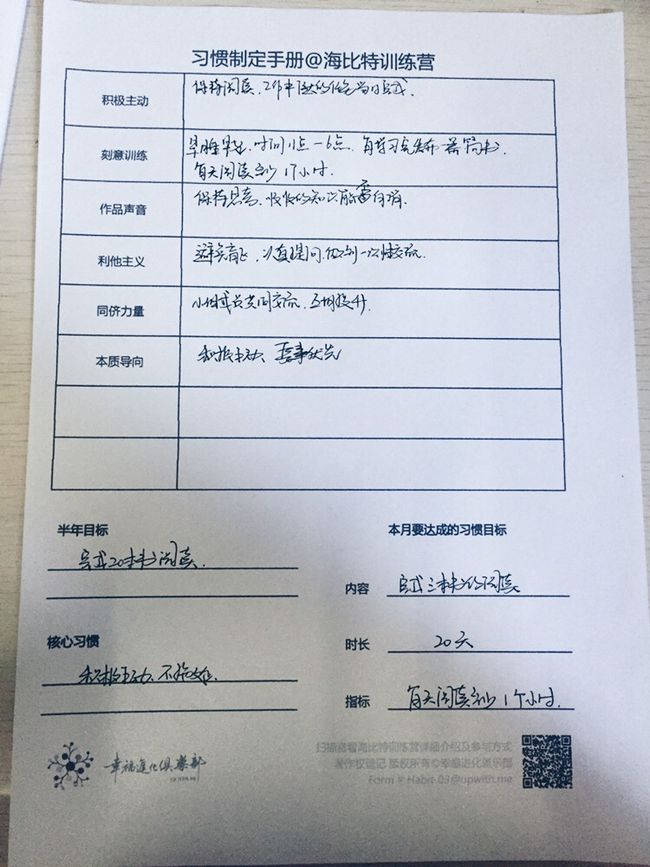 习惯制定手册@海比特训练营
积极主动
保持阅读、工作中 的任务当日完成.
刻意训练
早睡早起, 时间11点-6点. 每学习会发布一篇简书.
每天阅读至少1个小时.
作品声音
保持思考, 的知识
利他主义
以 一次性交流.
同侪力量
小组成员共同交流, 提升.
本质导向
积极主动、要事优先
半年目标
完成20本书阅读.
本月要达成的习惯目标
内容 完成三本书的阅读
核心习惯
积极主动、不拖延.
时长 20天
指标 每天阅读至少1个小时.
幸福进化俱乐部
扫描查看海比特训练营详细介绍及参与方式
著作权登记 版权所有©幸福进化俱乐部
Form # Habit-03@upwith.me